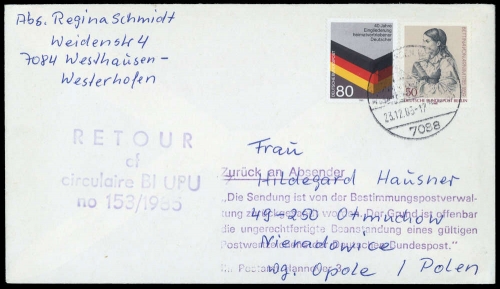 Abs. Regina Schmidt
Weidenstr 4
7084 Westhausen-
Westerhofen
40 Jahre
Eingliederung
heimatvertriebener
Deutscher
80
50
DEUTSCHE BUNDESPOST BERLIN
23.12.85-17
7088
RETOUR
cf
circulaire BI UPU
no 153/1985
Frau
Zurück an Absender
Hildegard Hausner
"Die Sendung ist von der Bestimmungspostverwal-
tung zurückgesandt worden. Der Grund ist offenbar
49-250 Otmuchów
die ungerechtfertigte Beanstandung eines gültigen
Nieradowice
Postwertzeichens der Deutschen Bundespost."
wg. Opole / Polen
Postamt Hannover 3